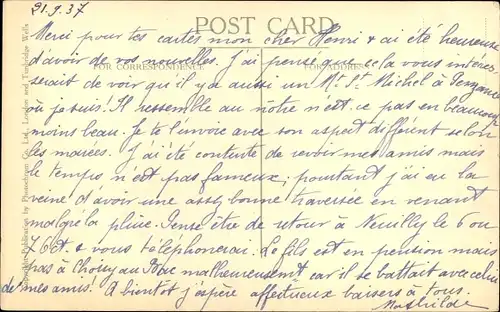 21.9.37
POST CARD
Merci pour tes cartes mon cher Henri & ai été heureuse
FOR CORRESPONDENCE
d'avoir de vos nouvelles. J'ai pensé que cela vous intéres
serait de voir qu'il y a aussi un Mt St Michel à Penzance
où je suis! Il ressemble au nôtre n'est ce pas en beaucoup
moins beau. Je te l'envoie avec son aspect différent selon
les marées. J'ai été contente de revoir mes amis mais
le temps n'est pas fameux; pourtant j'ai eu la
veine d'avoir une assez bonne traversée en venant
malgré la pluie. Pense être de retour à Neuilly le 6 ou
7 Oct & vous téléphonerai. Le fils est en pension mais
pas à Choisy au Bac malheureusement car il se battait avec celui
de mes amis! A bientôt j'espère affectueux baisers à tous.
Mathilde
Publication by Photochrom Co. Ltd., London and Tunbridge Wells